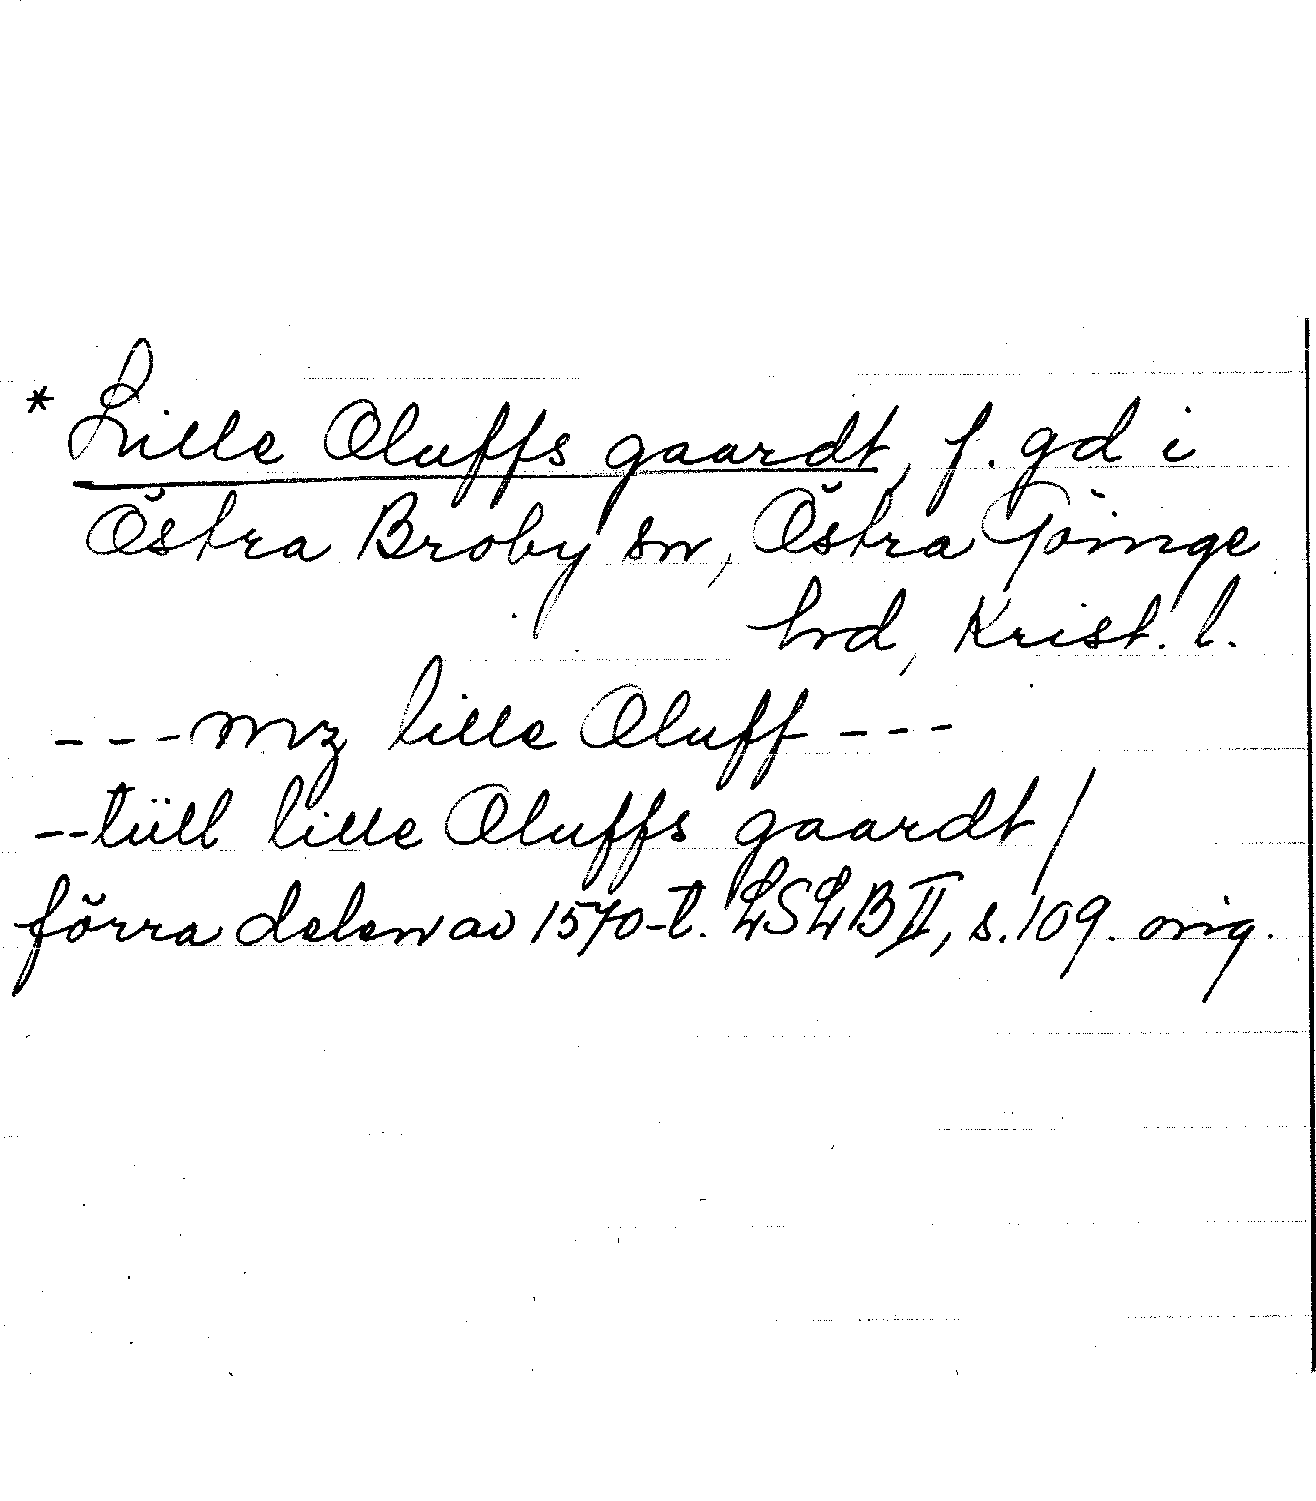 * Lille Oluffs gaardt, f. gd i
Östra Broby sn, Östra Göinge
hrd, Krist. l.
---mz lille Oluff---
--tüll lille Oluffs gaardt/
förra delen av 1570-t. LSLB II, s. 109. orig.